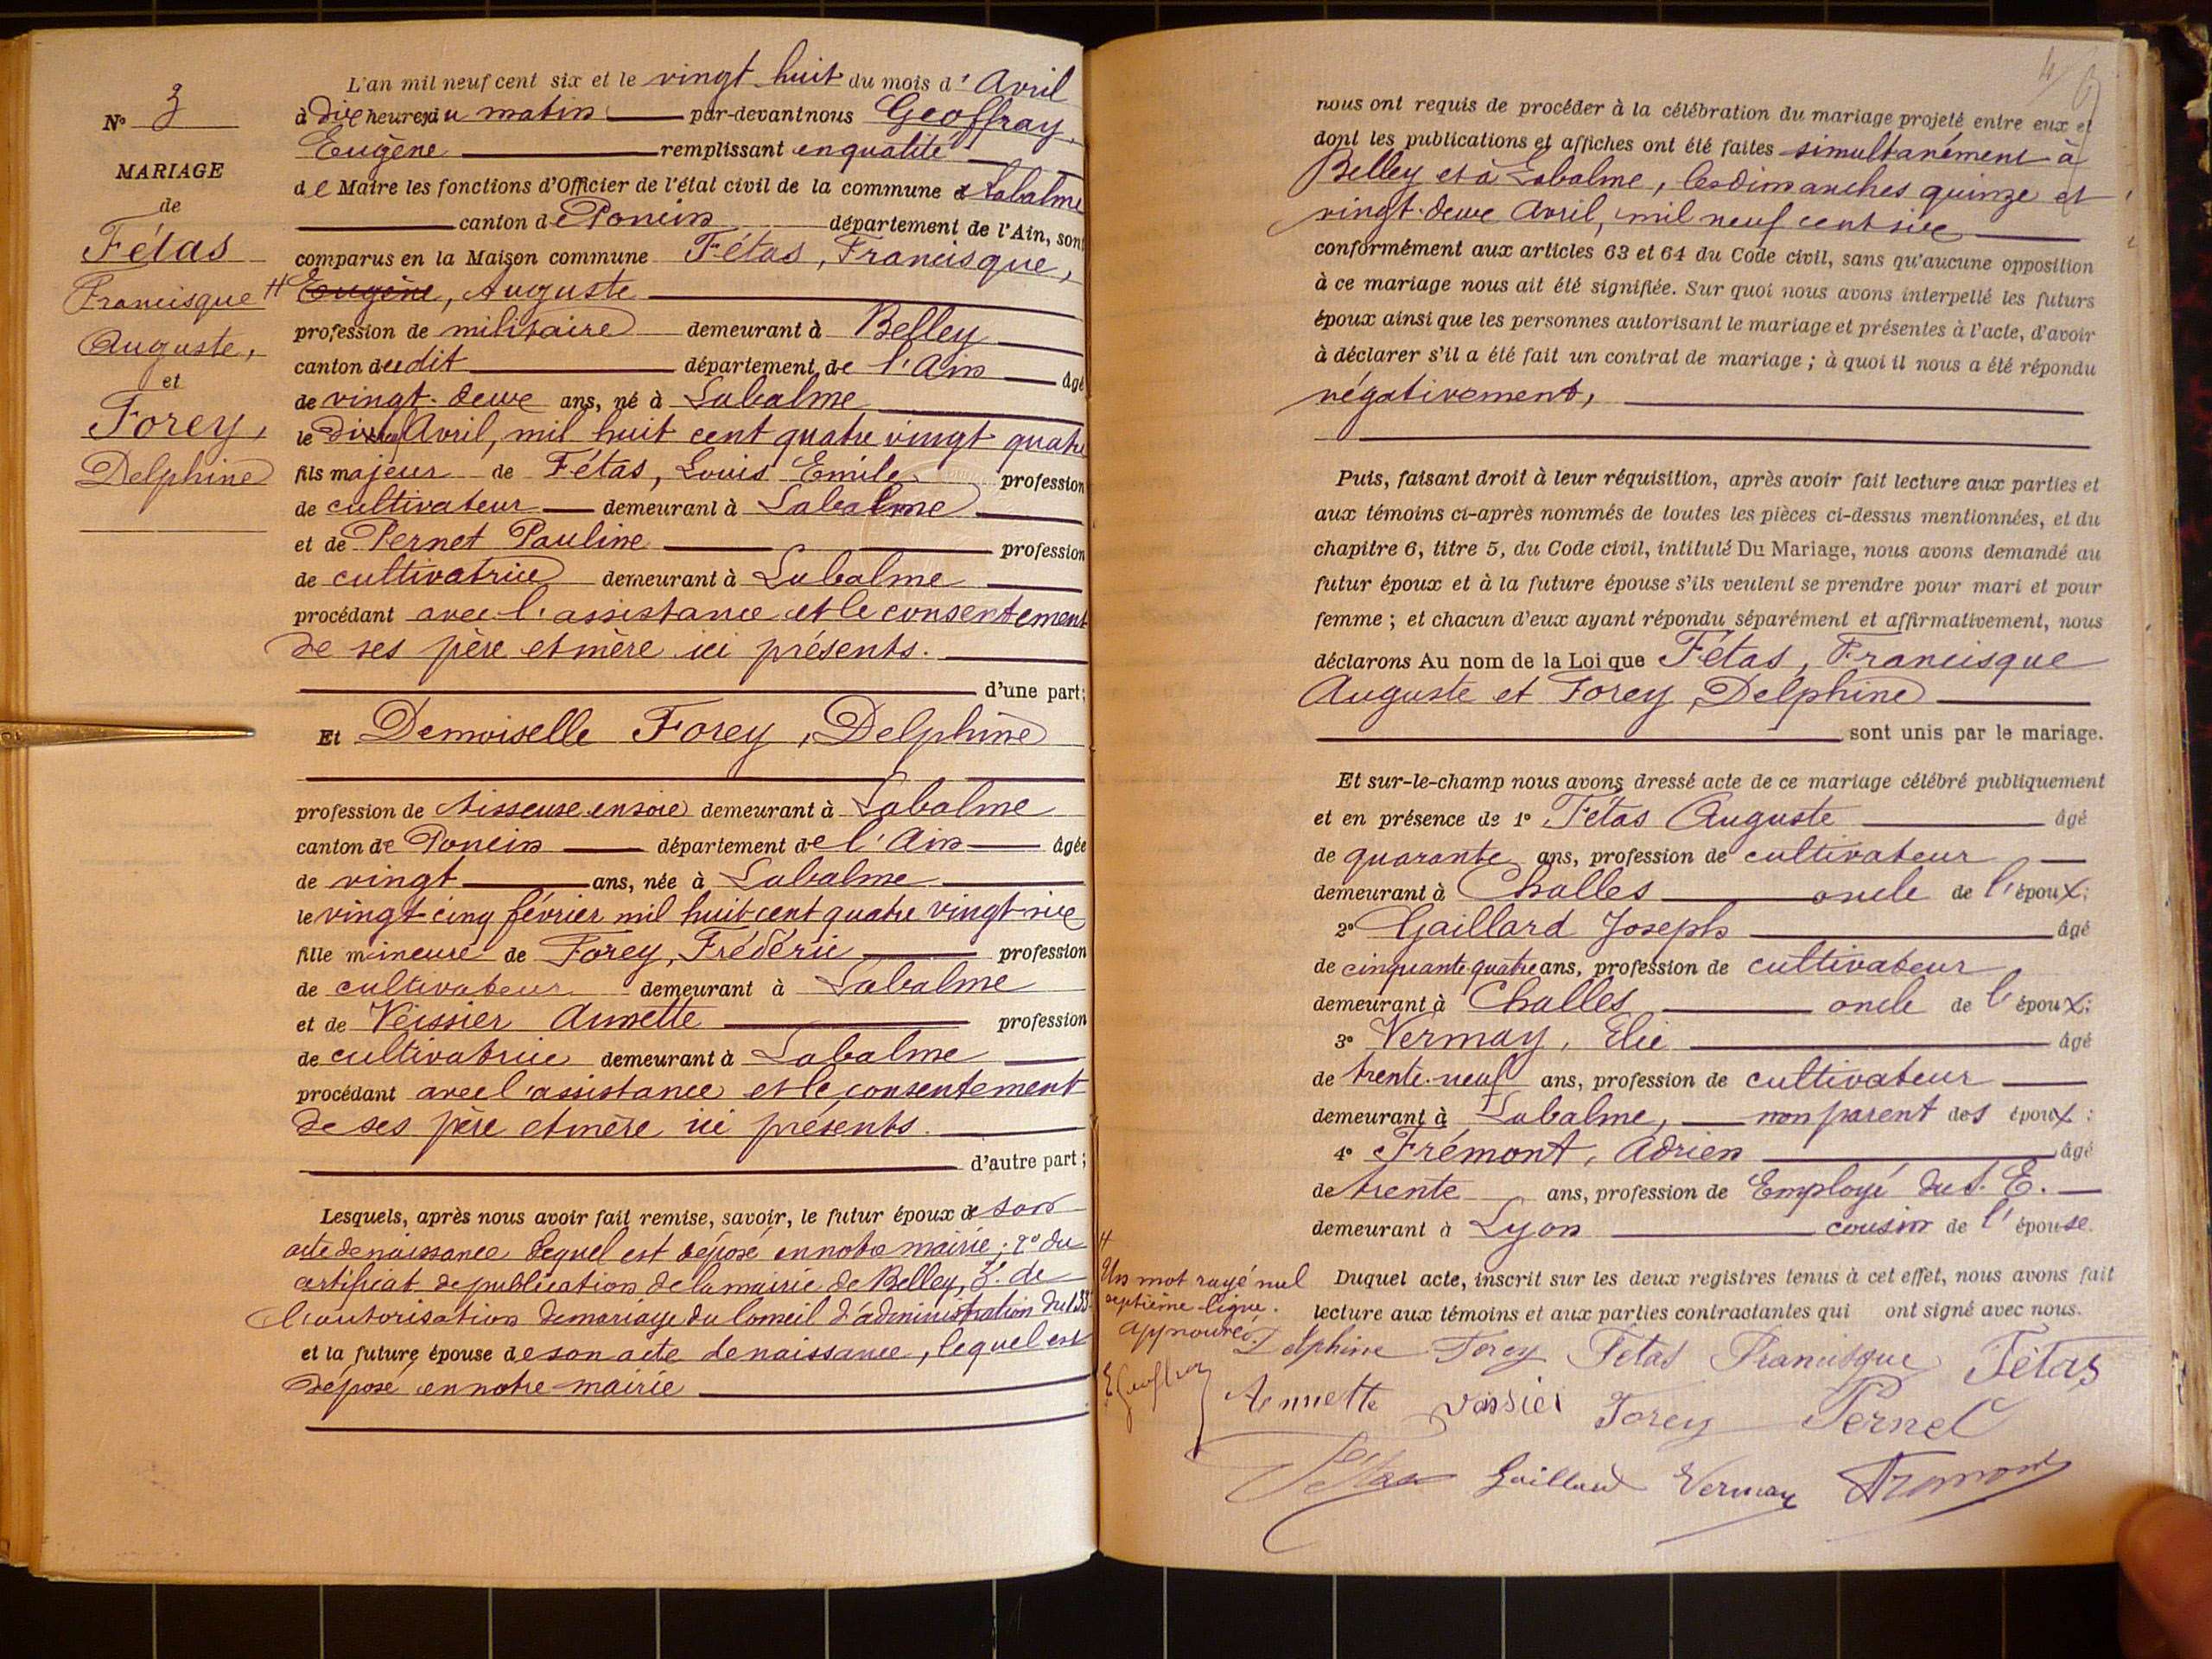 N° 3
MARIAGE
de
Fétas
Francisque
Auguste,
et
Forey,
Delphine
L'an mil neuf cent six et le vingt huit du mois d'Avril
à dix heures du matin par-devant nous Geoffray
Eugène remplissant en qualité
de Maire les fonctions d'Officier de l'état civil de la commune de Labalme
canton de Poncin département de l'Ain, sont
comparus en la Maison commune Fétas, Francisque,
H Eugène, Auguste
profession de militaire demeurant à Belley
canton dudit département de l'Ain âgé
de vingt-deux ans, né à Labalme
le Avril, mil huit cent quatre vingt quatre
fils majeur de Fétas, Louis Emile profession
de cultivateur demeurant à Labalme
et de Pernet Pauline profession
de cultivatrice demeurant à Labalme
procédant avec l'assistance et le consentement
de ses père et mère ici présents.
d'une part;
Et Demoiselle Forey, Delphine
profession de tisseuse en soie demeurant à Labalme
canton de Poncin département de l'Ain âgée
de vingt ans, née à Labalme
le vingt-cinq février mil huit cent quatre vingt-six
fille mineure de Forey, Frédéric profession
de cultivateur demeurant à Labalme
et de Veissier Annette profession
de cultivatrice demeurant à Labalme
procédant avec l'assistance et le consentement
de ses père et mère ici présents.
d'autre part;
Lesquels, après nous avoir fait remise, savoir, le futur époux de son
acte de naissance lequel est déposé en notre mairie; 2° du
certificat de publication de la mairie de Belley, 3° de
l'autorisation de mariage du Conseil d'administration du 133
et la future épouse de son acte de naissance, lequel est
déposé en notre mairie
nous ont requis de procéder à la célébration du mariage projeté entre eux et
dont les publications et affiches ont été faites simultanément à
Belley et à Labalme, les dimanches quinze et
vingt-deux Avril, mil neuf cent six
conformément aux articles 63 et 64 du Code civil, sans qu'aucune opposition
à ce mariage nous ait été signifiée. Sur quoi nous avons interpellé les futurs
époux ainsi que les personnes autorisant le mariage et présentes à l'acte, d'avoir
à déclarer s'il a été fait un contrat de mariage ; à quoi il nous a été répondu
négativement,
Puis, faisant droit à leur réquisition, après avoir fait lecture aux parties et
aux témoins ci-après nommés de toutes les pièces ci-dessus mentionnées, et du
chapitre 6, titre 5, du Code civil, intitulé Du Mariage, nous avons demandé au
futur époux et à la future épouse s'ils veulent se prendre pour mari et pour
femme ; et chacun d'eux ayant répondu séparément et affirmativement, nous
déclarons Au nom de la Loi que Fétas, Francisque
Auguste et Forey, Delphine
sont unis par le mariage.
Et sur-le-champ nous avons dressé acte de ce mariage célébré publiquement
et en présence de 1° Fétas Auguste âgé
de quarante ans, profession de cultivateur
demeurant à Challes oncle de l'époux;
2° Gaillard Joseph âgé
de cinquante-quatre ans, profession de cultivateur
demeurant à Challes oncle de l'époux;
3° Vermay, Elie âgé
de trente-neuf ans, profession de cultivateur
demeurant à Labalme, non parent des époux;
4° Frémont, Adrien âgé
de trente ans, profession de Employé du S. E.
demeurant à Lyon cousin de l'épouse.
Duquel acte, inscrit sur les deux registres tenus à cet effet, nous avons fait
lecture aux témoins et aux parties contractantes qui ont signé avec nous.
H
Un mot rayé nul
septième ligne.
Approuvé.
Delphine Forey Fétas Francisque Fétas
Annette Vassier Forey Pernet
Fétas Gaillard Vermay Fremont